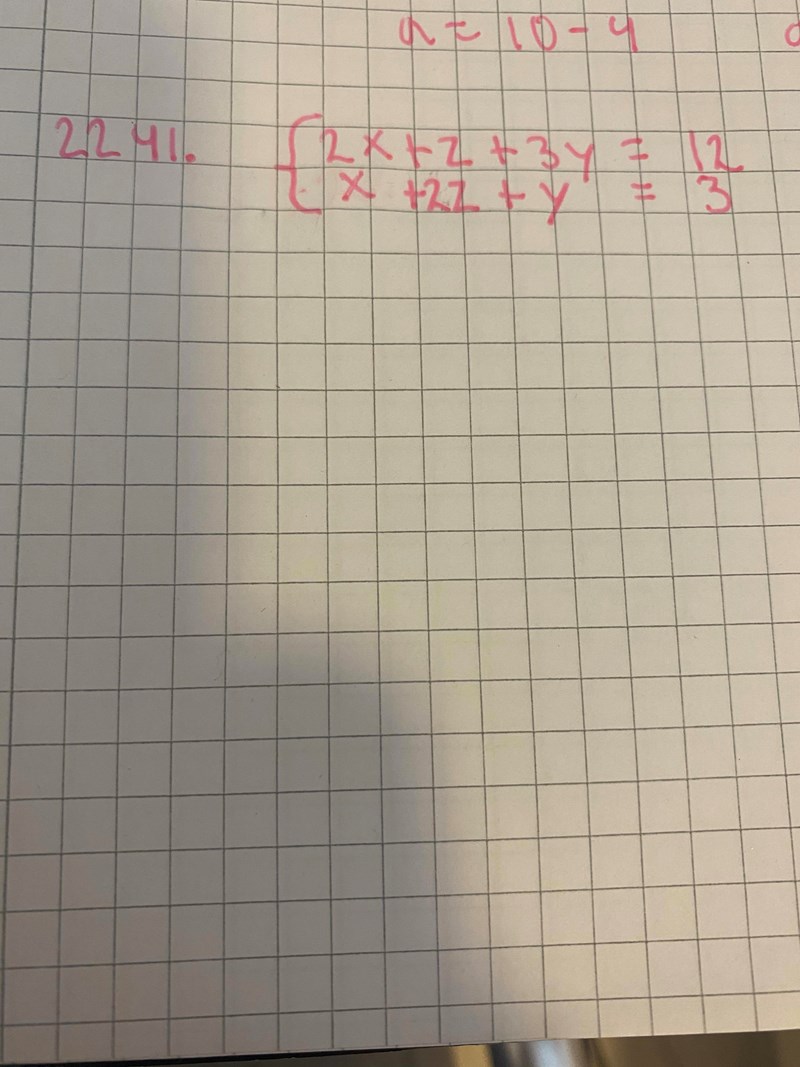 a = 10 - 4
2241. { 2x + z + 3y = 12
x + 2z + y = 3